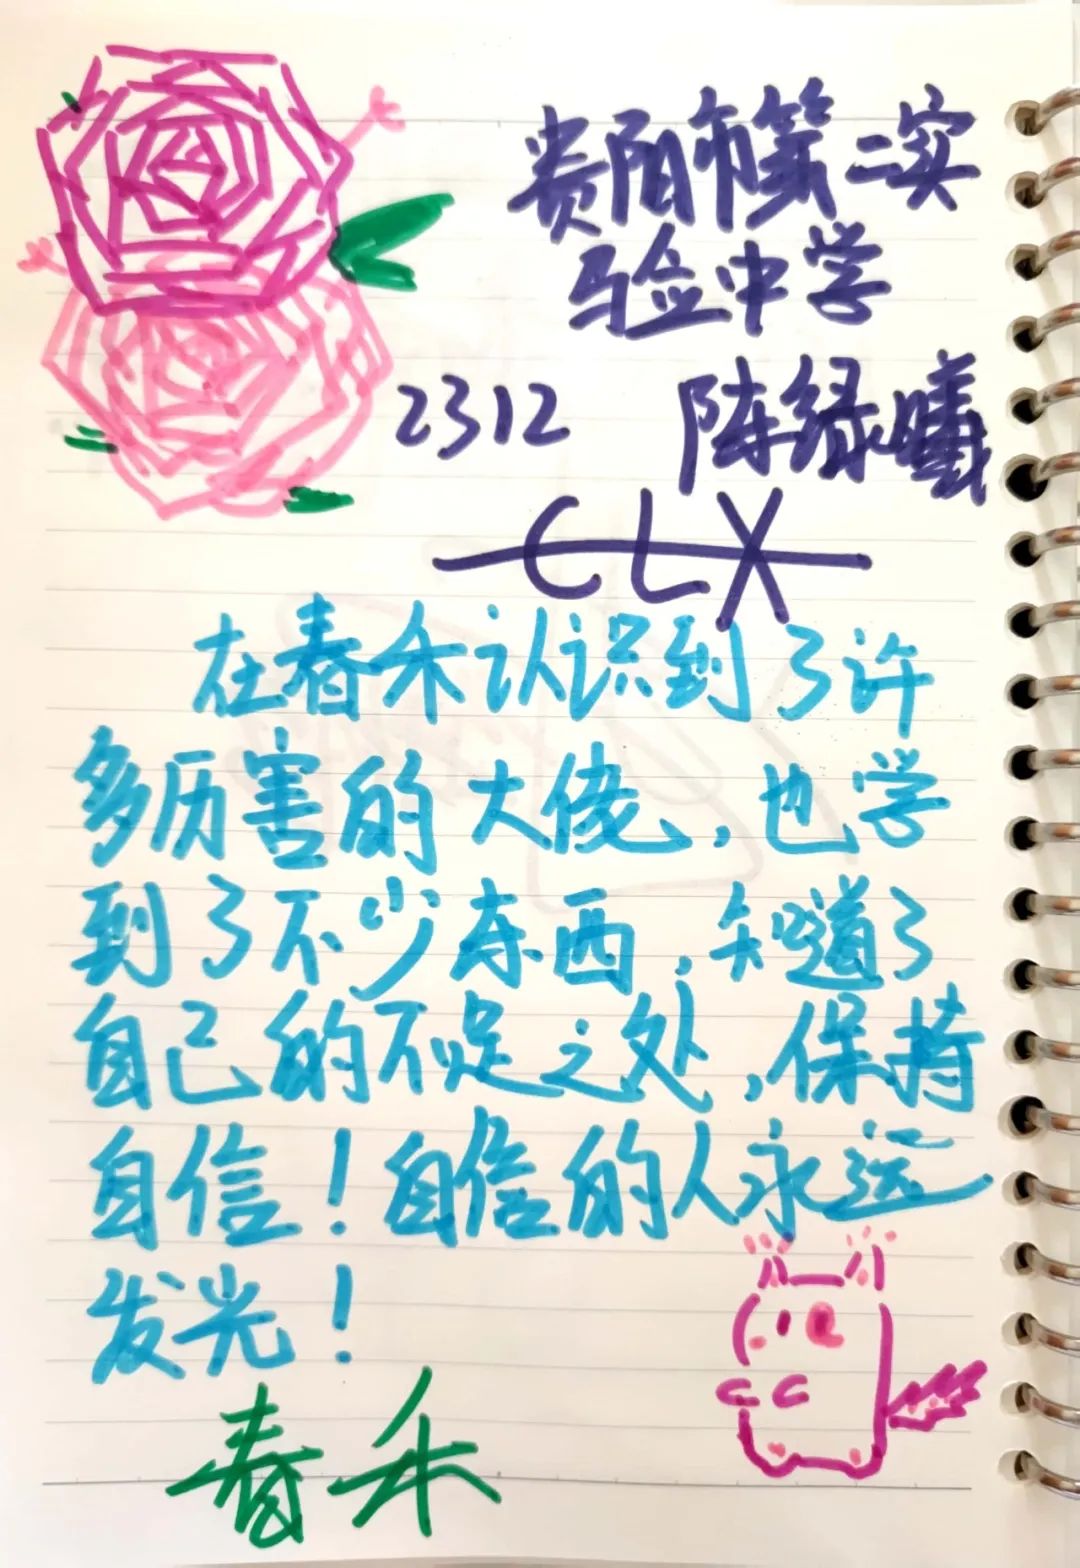 贵阳市第二实
验中学
2312 陈绿曦
CLX
在春禾认识到了许
多厉害的大佬,也学
到了不少东西,知道了
自己的不足之处,保持
自信!自信的人永远
发光!
春禾